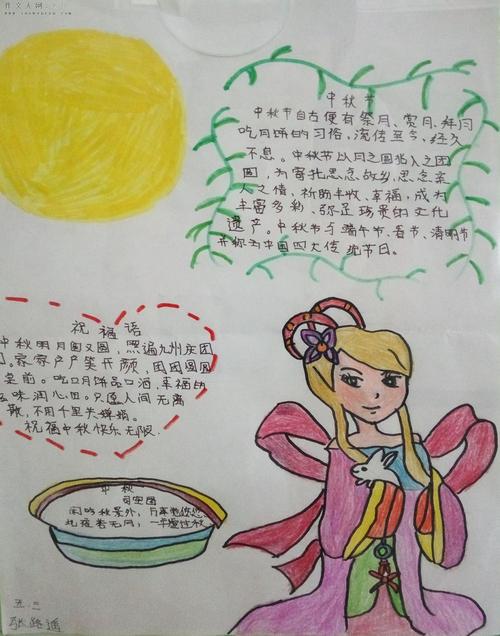 作文大网
中秋节
中秋节自古便有祭月、赏月、拜月
吃月饼的习俗，流传至今，经久
不息。中秋节以月之圆兆人之团
圆，为寄托思念故乡，思念亲
人之情，祈盼丰收、幸福，成为
丰富多彩、弥足珍贵的文化
遗产。中秋节与端午节、春节、清明节
并称为中国四大传统节日。
祝福语
中秋明月圆又圆，照遍九州庆团
圆。家家户户笑开颜，团团圆圆
桌前。吃口月饼品口酒，幸福的
滋味润心田。只愿人间无离
散，不用千里共婵娟。
祝福中秋快乐无限.
中秋
司空图
闲吟秋景外，万事觉悠悠
此夜若无月，一年虚过秋
五.二
张路遥